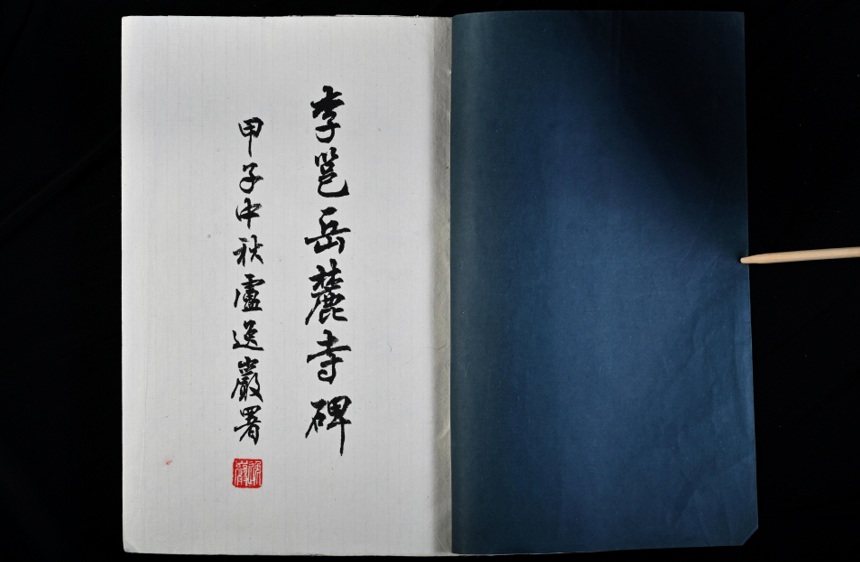 李邕岳麓寺碑
甲子中秋盧逸巖署